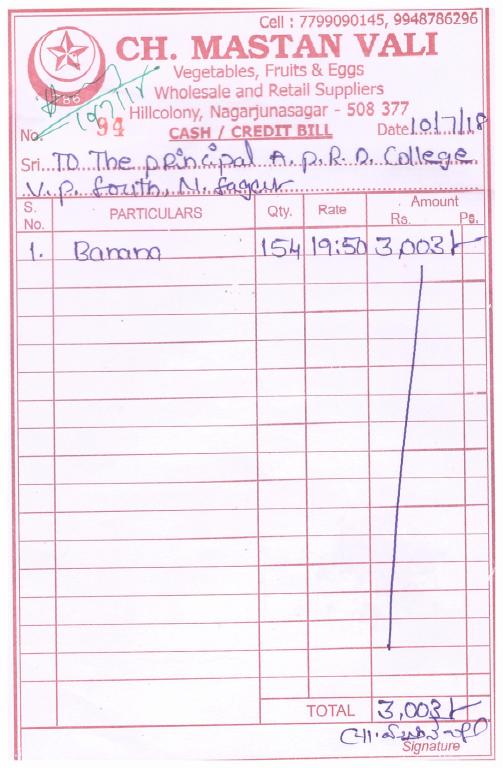 Cell : 7799090145, 9948786296
786
CH. MASTAN VALI
Vegetables, Fruits & Eggs
Wholesale and Retail Suppliers
Hillcolony, Nagarjunasagar - 508 377
10/7/18
No. 94 CASH / CREDIT BILL Date 10/7/18
Sri. TO The principal A.P.R.D. College
V.P. South, N. Sagar
S. No. PARTICULARS Qty. Rate Amount Rs. Ps.
1. Banana 154 19:50 3,003/-
TOTAL 3,003/-
Signature